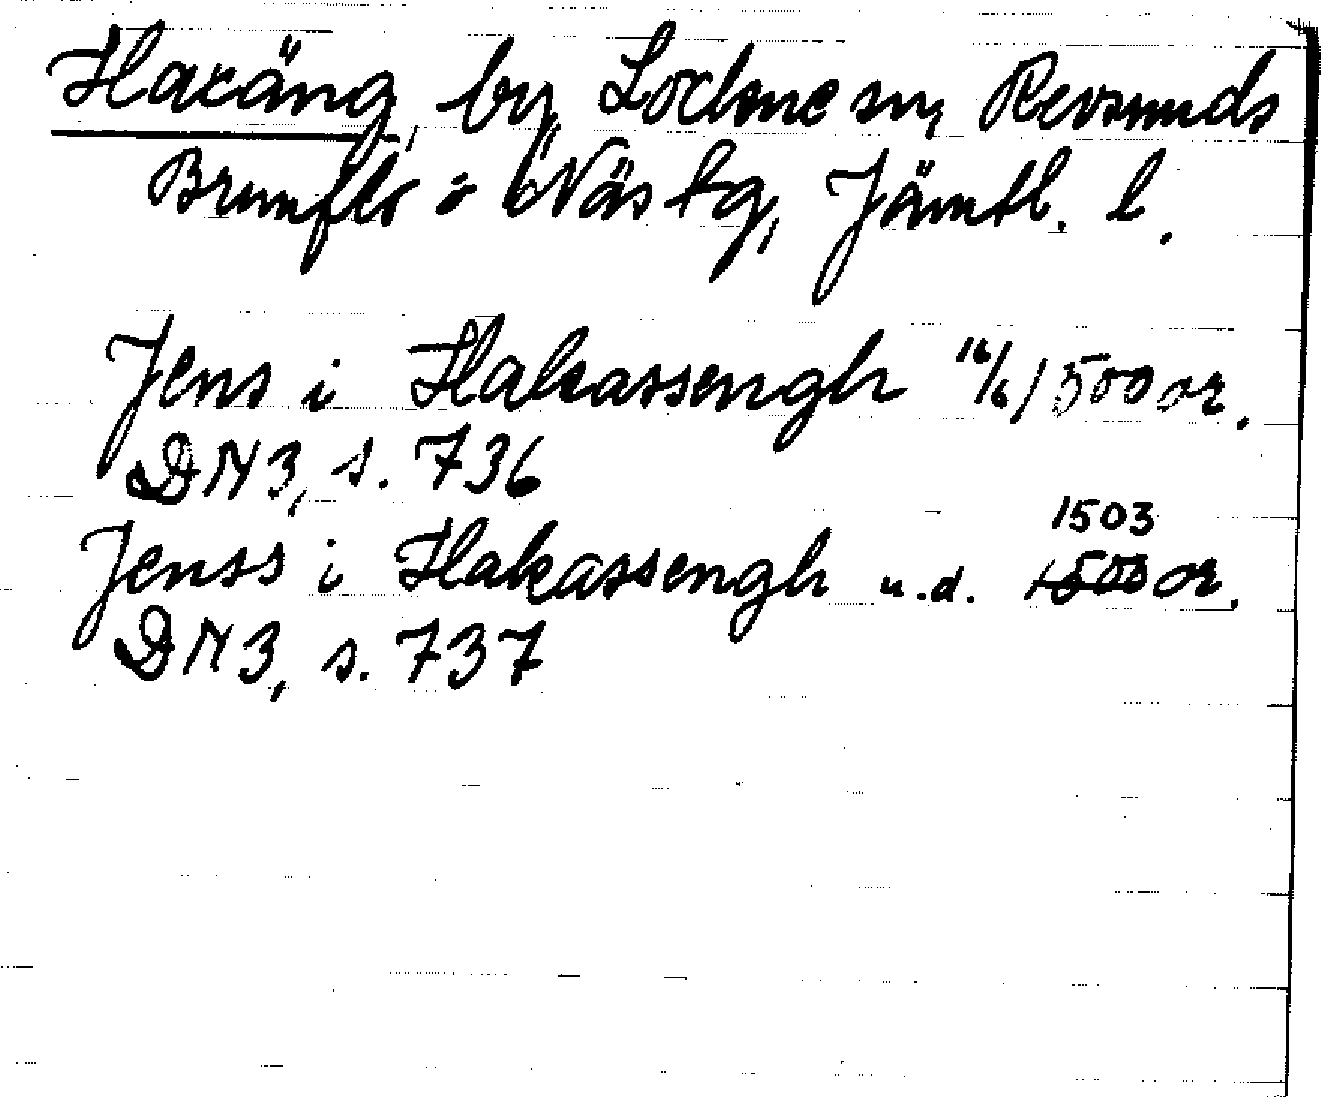 Haräng, by, Lockne sn, Revsunds
Brunflo o Näs tg, Jämtl. l.
Jens i Hakassengh 16/6 1500 or.
DN 3, s. 736
Jenss i Hakassengh u.d. 1503 or.
DN 3, s. 737